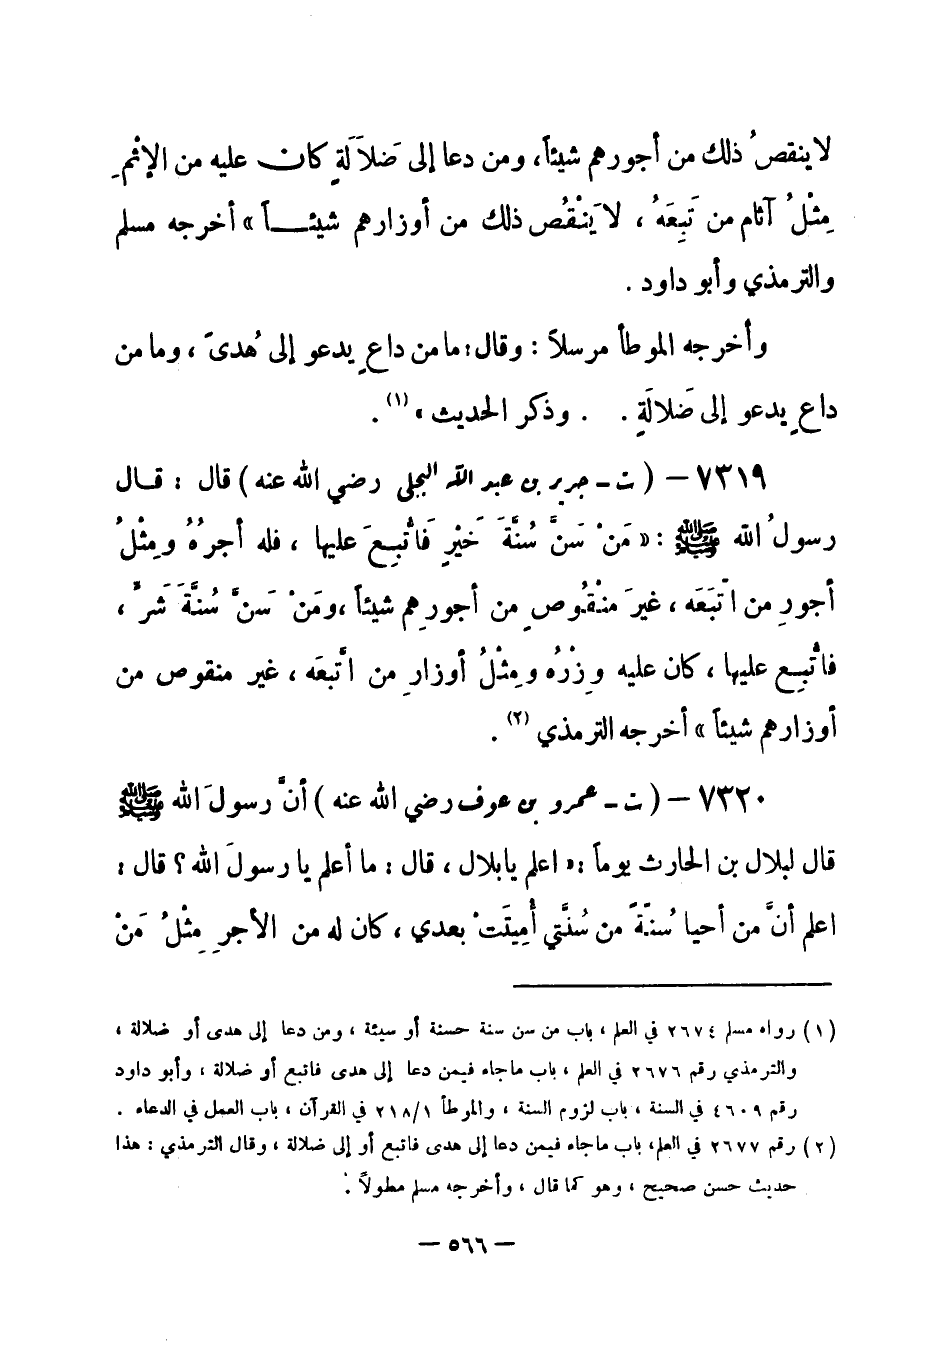 لا ينقصُ ذلك من أجورهم شيئاً، ومن دعا إلى ضَلاَلَةٍ كان عليه من الإثْمِ
مِثْلُ آثام من تَبِعَهُ ، لا يَنْقُص ذلك من أوزارهم شيئــاً » أخرجه مسلم
والترمذي وأبو داود .
وأخرجه الموطأ مرسلاً : وقال: ما من داعٍ يدعو إلى هُدىً ، وما من
داعٍ يدعو إلى ضَلالَةٍ . . وذكر الحديث » (١) .
٧٣١٩ - ( ت - جرير بن عبد الله البجلي رضي الله عنه ) قال : قال
رسولُ الله ﷺ : « مَنْ سَنَّ سُنَّةَ خَيْرٍ فَاتُّبِعَ عليها ، فله أجرُهُ ومِثْلُ
أجورِ من اتَّبَعَه ، غيرَ منْقُوصٍ من أجورِهم شيئاً ، ومَنْ سَنَّ سُنَّةَ شَرٍّ ،
فاتُّبِع عليها ، كان عليه وِزْرُه ومِثْلُ أوزارِ من اتَّبعَه ، غير منقوص من
أوزارهم شيئاً » أخرجه الترمذي (٢) .
٧٣٢٠ - ( ت - عمرو بن عوف رضي الله عنه ) أنَّ رسولَ الله ﷺ
قال لبلال بن الحارث يوماً : « اعلم يابلال ، قال : ما أعلم يا رسولَ الله ؟ قال :
اعلم أنَّ من أحيا سُنَّةً من سُنَّتي أُمِيتَتْ بعدي ، كان له من الأجرِ مِثْلُ مَنْ
(١) رواه مسلم ٢٦٧٤ في العلم ، باب من سن سنة حسنة أو سيئة ، ومن دعا إلى هدى أو ضلالة ،
والترمذي رقم ٢٦٧٦ في العلم ، باب ماجاء فيمن دعا إلى هدى فاتبع أو ضلالة ، وأبو داود
رقم ٤٦٠٩ في السنة ، باب لزوم السنة ، والموطأ ٢١٨/١ في القرآن ، باب العمل في الدعاء .
(٢) رقم ٢٦٧٧ في العلم، باب ماجاء فيمن دعا إلى هدى فاتبع أو إلى ضلالة ، وقال الترمذي : هذا
حديث حسن صحيح ، وهو كما قال ، وأخرجه مسلم مطولاً .
- ٥٦٦ -